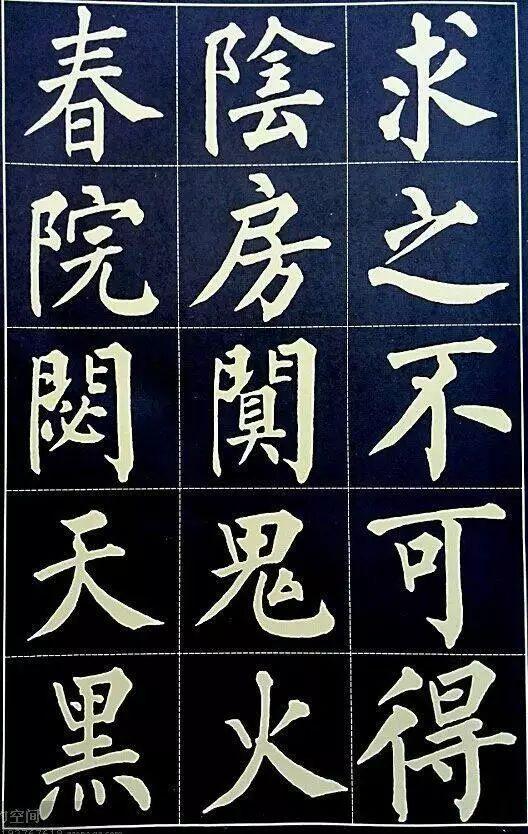 求之不可得
陰房闐鬼火
春院閟天黑
空间